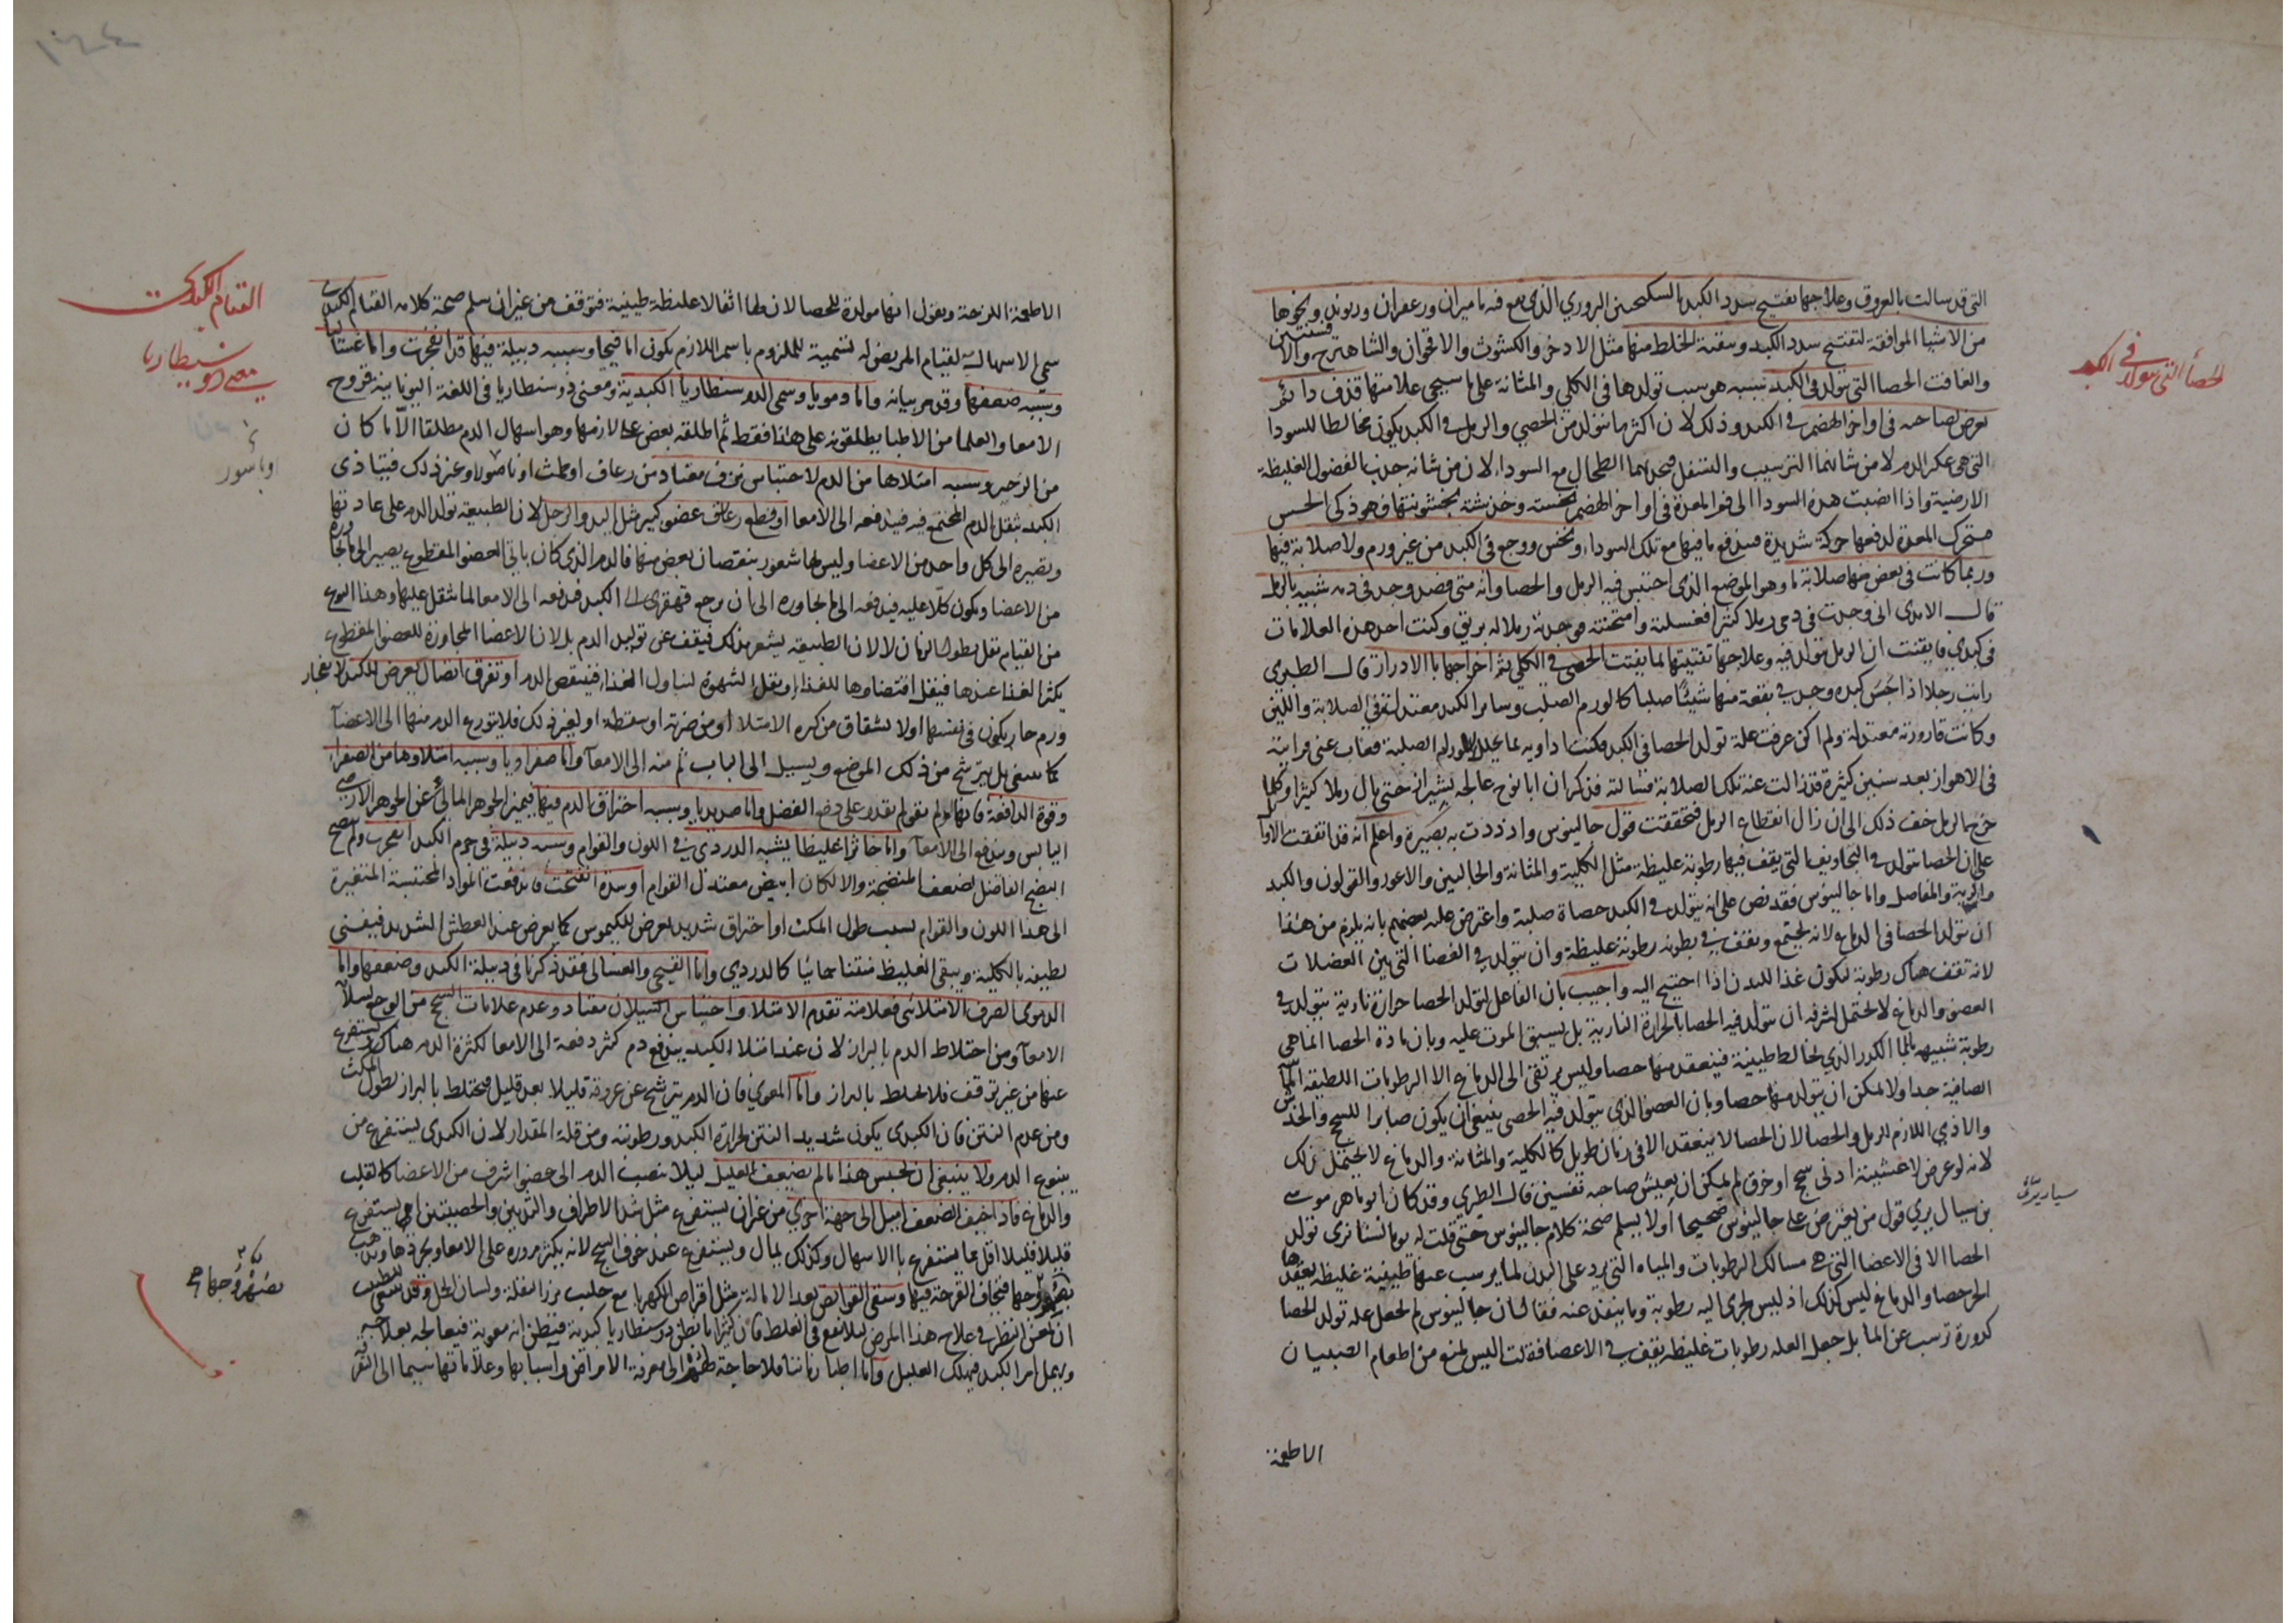 التي قد سالت بالعروق وعلاجها تفتيح سدد الكبد بالسكنجبين البزوري الذي مع فيه ماميران وزعفران وريوند ونحوها
من الاشيا الموافقة لتفتيح سدد الكبد وتنقية الخلط منها مثل الادخر والكشوث والاقحوان والشاهترج والافسنتين
والغافت الحصا التي تتولد في الكبد سببه هو سبب تولدها في الكلى والمثانة على ما سيجي علامتها قذف دائم
يعرض لصاحبه في اواخر الهضم في الكبد وذلك لان اكثر ما يتولد من الحصى والرمل في الكبد يكون مخالطا للسودا
التي هي عكر الدم لا من شانهما الترسيب والتسفل فيجذبهما الطحال مع السودا لان من شانه جذب الفضول الغليظة
الارضية واذا انصبت هذه السودا الى فم المعدة في اواخر الهضم نخسته وخدشته بخشونتها وهو ذكي الحس
فتحرك المعدة لدفعها حركة شديدة فيندفع ما فيها مع تلك السودا ونخس ووجع في الكبد من غير ورم ولا صلابة فيها
وربما كانت في بعض منها صلابة ما وهو الموضع الذي احتبس فيه الرمل والحصا وانه متى فصد وجد في دمه شبيه بالرمل
قال الامدي اني وجدت في دمي رملا كثيرا فغسلته وامتحنته فوجدته رملا له بريق وكنت اجد هذه العلامات
في كبدي فايقنت ان الرمل يتولد فيه وعلاجها تفتيتها بما يفتت الحصى في الكلى ثم اخراجها بالادرار قال الطبري
رايت رجلا اذا جس كبده وجد في بقعة منها شيئا صلبا كالورم الصلب وسائر الكبد معتدلة في الصلابة واللين
وكانت قارورته معتدلة ولم اكن عرفت علة تولد الحصا في الكبد فكنت اداويه بما يحلل الاورام الصلبة فغاب عني فرايته
في الاهواز بعد سنين كثيرة قد زالت عنه تلك الصلابة فسالته فذكر ان ابا نوح عالجه بشيراز حتى بال رملا كثيرا وكلما
خرج بالرمل خف ذلك الى ان زال انقطاع الرمل فتحققت قول جالينوس وازددت به بصيرة واعلم انه قد اتفقت الارا
على ان الحصا تتولد في التجاويف التي يقف فيها رطوبة غليظة مثل الكلية والمثانة والحالبين والاعور والقولون والكبد
والرية والمفاصل واما جالينوس فقد نص على انه يتولد في الكبد حصاة صلبة واعترض عليه بعضهم بانه يلزم من هذا
ان تتولد الحصا في الدماغ لانه يجتمع ويقف في بطونه رطوبة غليظة وان يتولد في الفضا التي بين العضلات
لانه تقف هناك رطوبة ليكون غذا للبدن اذا احتيج اليه واجيب بان الفاعل لتولد الحصا حرارة نارية يتولد في
العضو والدماغ لا يحتمل لشرفه ان يتولد فيه الحصا بالحرارة النارية بل يسبق الموت عليه وبان مادة الحصا انما هي
رطوبة شبيهة بالما الكدر الذي يخالط طينية فينعقد منها حصا وليس يرتقي الى الدماغ الا الرطوبات اللطيفة
الصافية جدا ولا يمكن ان يتولد منها حصا وبان العضو الذي يتولد فيه الحصى ينبغي ان يكون صابرا للسحج والخدش
والاذي اللازم للرمل والحصا لان الحصا لا ينعقد الا في زمان طويل كالكلية والمثانة والدماغ لا يحتمل ذلك
لانه لو عرض لاغشيته ادنى سحج او خرق لم يمكن ان يعيش صاحبه نفسين قال الطبري وقد كان ابو ماهر موسى
بن سيار يري قول من يعترض على جالينوس صحيحا اولا يسلم صحة كلام جالينوس حتى قلت له يوما لسنا نرى تولد
الحصا الا في الاعضا التي هي مسالك الرطوبات والمياه التي يرد على البدن لما يرسب عنها طينية غليظة يعقدها
الحر حصا والدماغ ليس كذلك اذ ليس يجري اليه رطوبة وما ينفذ عنه فقال ان جالينوس لم يجعل علة تولد الحصا
كدورة ترسب عن الما بل جعل العلة رطوبات غليظة يقف في الاعضا فقلت اليس يمنع من اطعام الصبيان
الاطعمة
الحصا التي تتولد في الكبد
الاطعمة اللزجة ويقول انها مولدة للحصا لان لها اثقالا غليظة طينية فتوقف من غير ان سلم صحة كلامه القيام الكبدي
سمي الاسهال به لقيام المريض له تسمية للملزوم باسم اللازم يكون اما قيحيا وسببه دبيلة فيها قد انفجرت واما غساليا
وسببه ضعفها وقد مر بيانه واما دمويا وسمي الدوسنطاريا الكبدية ومعنى دوسنطاريا في اللغة اليونانية قروح
الامعا والعلما من الاطبا يطلقونه على هذا فقط ثم اطلقه بعض على لازمها وهو اسهال الدم مطلقا الا ما كان
من الزحير وسببه امتلاها من الدم لاحتباس نزف معتاد من رعاف او طمث او ناصور او غير ذلك فيتاذى
الكبد بثقل الدم المجتمع فيه فيدفعه الى الامعا او قطع عضو كبير مثل اليد والرجل لان الطبيعة تولد الدم على عادتها
وتصيره الى كل واحد من الاعضا وليس لها شعور بنقصان بعض منها فالدم الذي كان ياتي العضو المقطوع يصير الى ما يجاوره
من الاعضا ويكون كلا عليه فيدفعه الى ما يجاوره الى ان يرجع قهقرى الى الكبد فتدفعه الى الامعا لما ثقل عليها وهذا النوع
من القيام يقل بطول الزمان لا لان الطبيعة يشعر بذلك فيقف عن توليد الدم بل لان الاعضا المجاورة للعضو المقطوع
يكثر الغذا عندها فيقل اقتضاوها للغذا ويقل الشهوة لتناول الغذا فينقص الدم او تفرق اتصال يعرض للكبد لانفجار
ورم حار يكون في نفسها اولا نشقاق من كثره الامتلا او من ضربة او سقطة او لغير ذلك فلا يتوزع الدم منها الى الاعضا
كما ينبغي بل يترشح من ذلك الموضع ويسيل الى الباب ثم منه الى الامعا واما صفراويا وسببه امتلاوها من الصفرا
وقوة الدافعة فانها لو لم تقو لم تقدر على دفع الفضل واما صديديا وسببه احتراق الدم فيها فيميز الجوهر المائي عن الجوهر الارضي
اليابس ويندفع الى الامعا واما خاثرا غليظا يشبه الدردي في اللون والقوام وسببه دبيلة في جرم الكبد انفجرت ولم ينضج
النضج الفاضل لضعف المنضجة والا لكان ابيض معتدل القوام او سدة انفتحت فاندفعت المواد المحتبسة المتغيرة
الى هذا اللون والقوام بسبب طول المكث او احتراق شديد يعرض للكيموس كما يعرض عند العطش الشديد فيفنى
لطيفه بالكلية ويبقى الغليظ منتنا كالدردي واما القيحي والغسالي فقد ذكرنا في دبيلة الكبد وضعفها واما
الدموي الصرف الامتلائي فعلامته تقدم الامتلا واحتباس لسيلان معتاد وعدم علامات السحج من الوجع
الامعا ومن اختلاط الدم بالبراز لان عند امتلا الكبد يندفع دم كثر دفعة الى الامعا لكثرة الدم هناك ويستفرغ
عنها من غير توقف فلا يختلط بالبراز واما المعوي فان الدم يترشح عن عروقه قليلا بعد قليل فيختلط بالبراز لطول المكث
ومن عدم النتن فان الكبدي يكون شديد النتن لحرارة الكبد ورطوبته ومن قلة المقدار لان الكبدي يستفرغ من
ينبوع الدم ولا ينبغي ان يحبس هذا ما لم يضعف العليل ليلا ينصب الدم الى عضو اشرف من الاعضا كالقلب
والدماغ فاذا خيف الضعف اميل الى جهة اخرى من غير ان يستفرغ مثل شد الاطراف والثديين والخصيتين او يستفرغ
قليلا قليلا اقل مما يستفرغ بالاسهال وكذلك يمال ويستفرغ عند خوف السحج لانه يكثر مروره على الامعا ويجردها ويذهب
بصهروجها فيخاف القرحة فيها وسقى القوابض بعد الامالة مثل اقراص الكهربا مع حليب بزر البقلة ولسان الحمل وقد ينبغي للطبيب
ان يمعن النظر في علاج هذا المرض ليلا يقع في الغلط فان كثيرا ما يظن دوسنطاريا كبدية فيظن انه معوية فيعالجه بعلاجه
ويهمل امر الكبد فيهلك العليل واما اطبا زماننا فلا حاجة لهم الى معرفة الامراض واسبابها وعلاماتها سيما الى التفر
القيام الكبدي
معنى دوسنطاريا